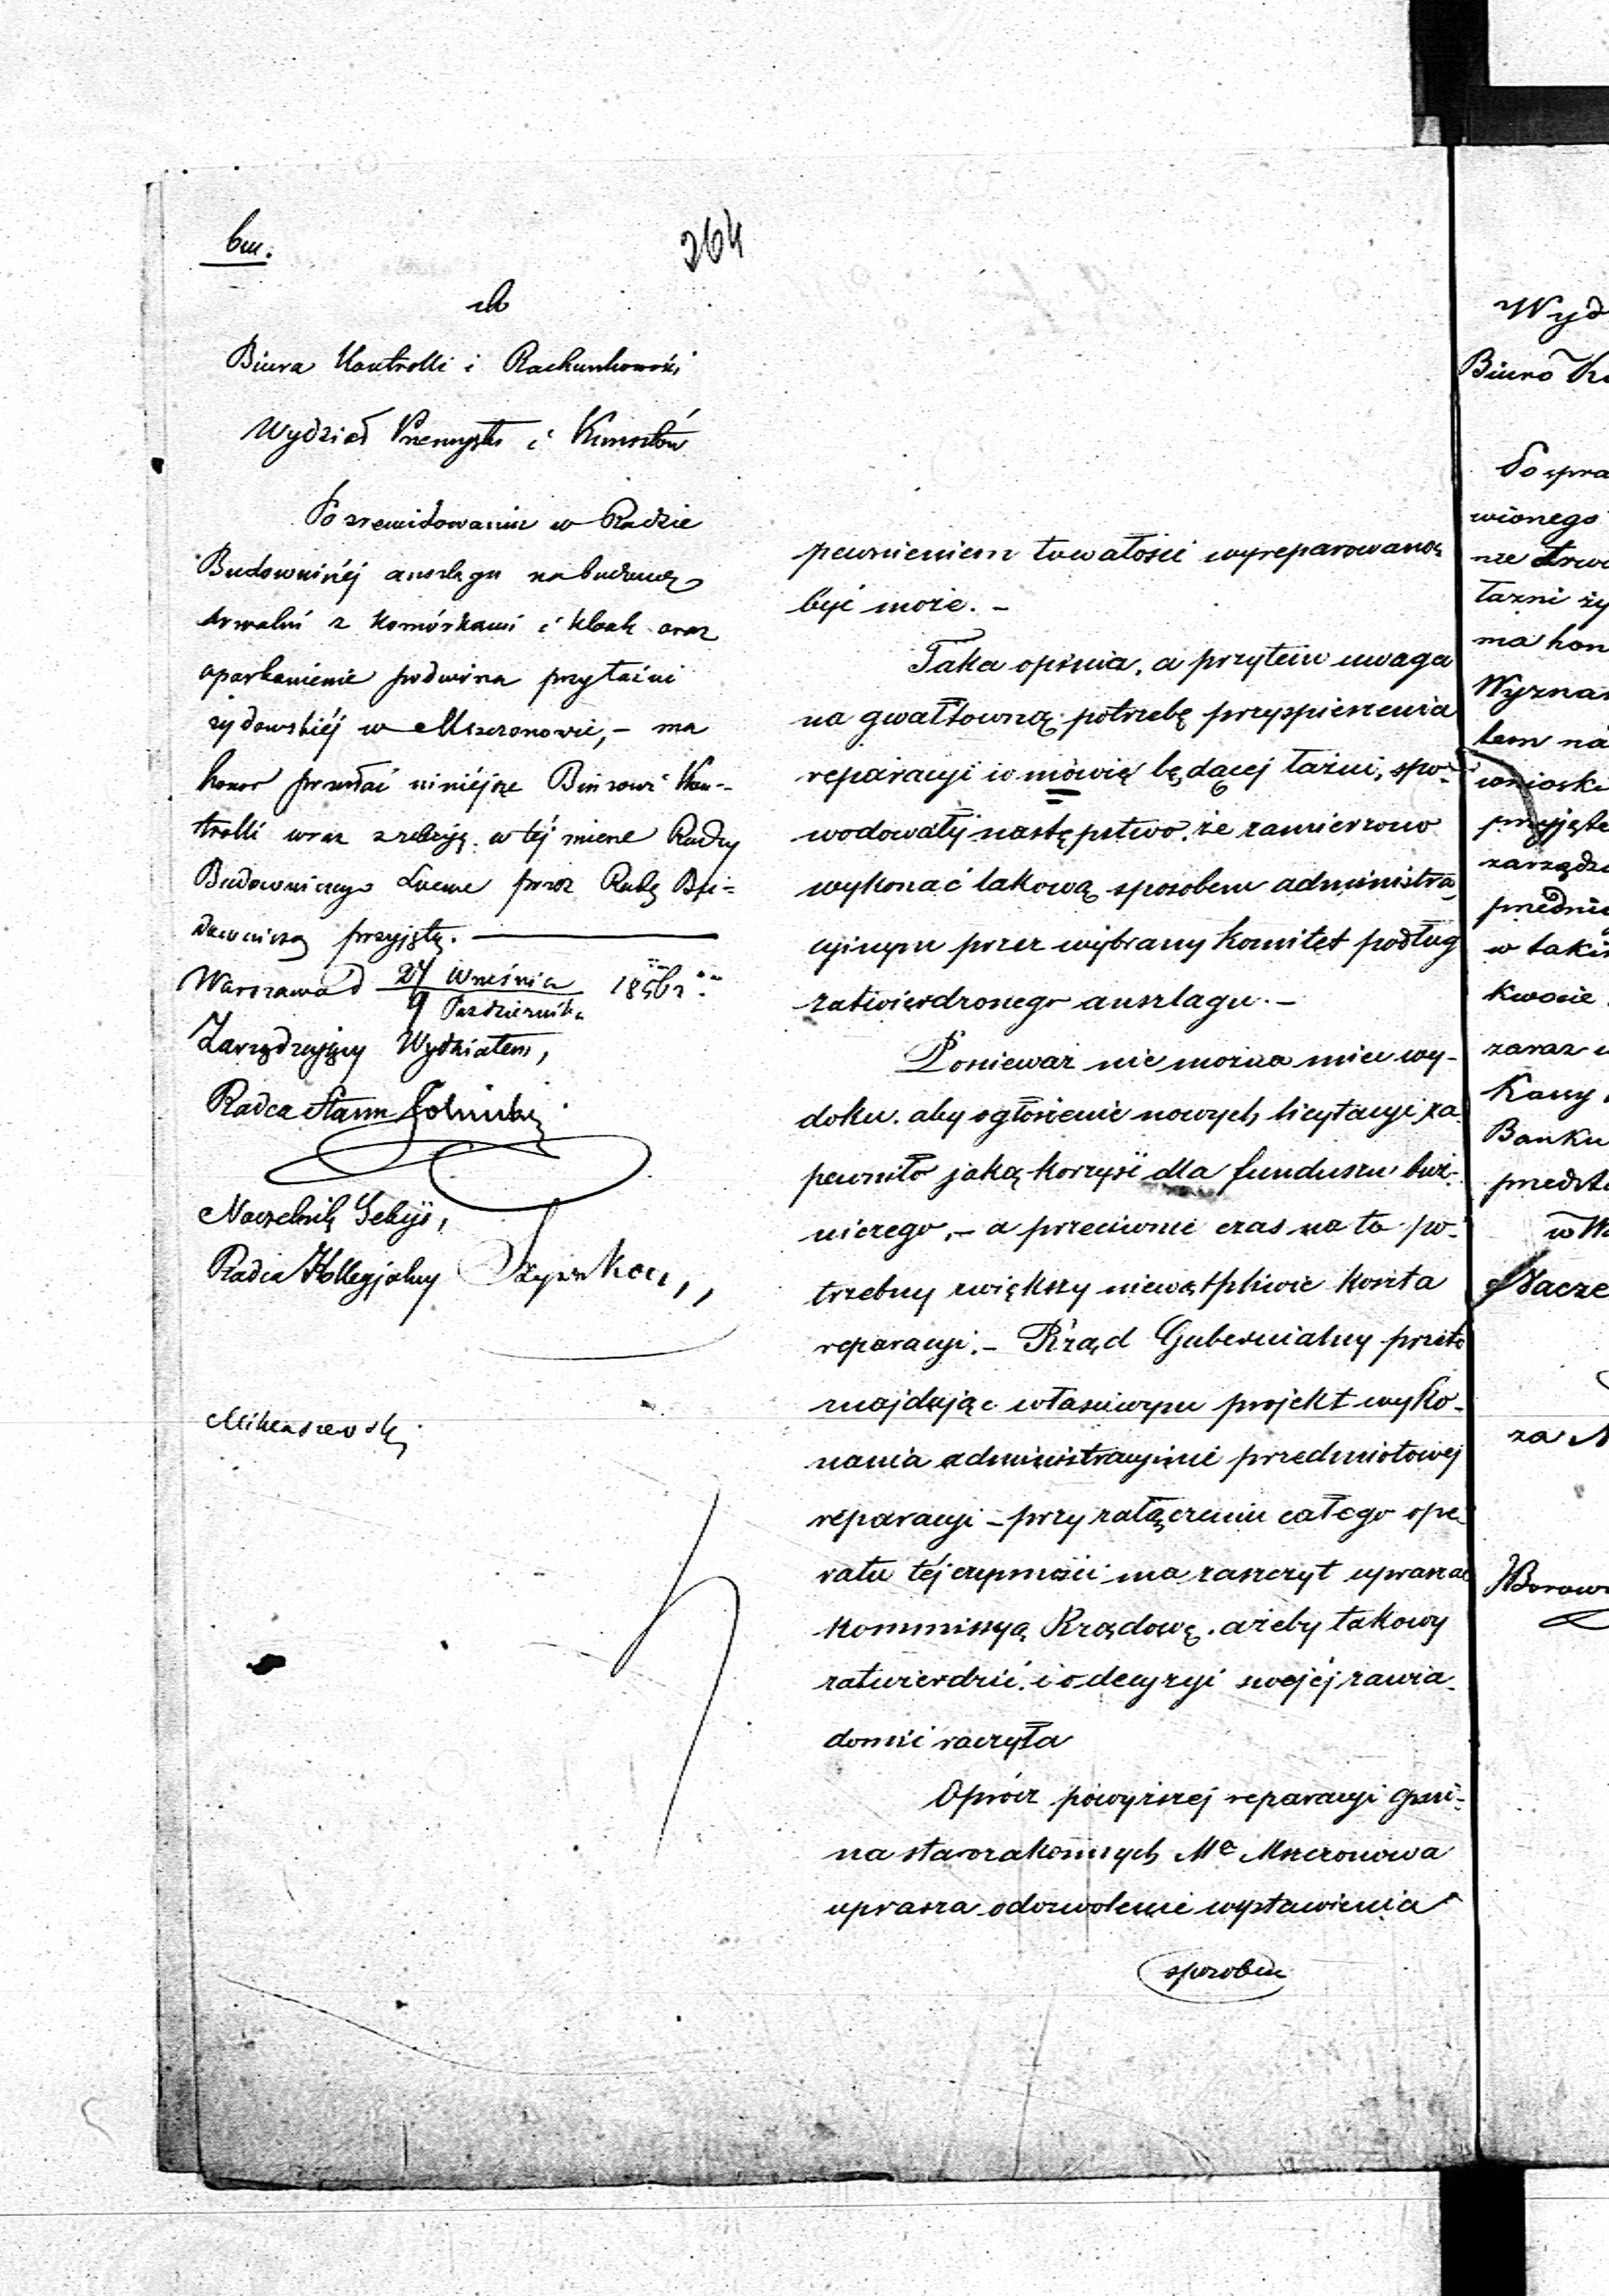 bm.
264
do
Biura Kontrolli i Rachunkowości
Wydział Przemysłu i Kunsztów
Po zrewidowaniu w Radzie
Budowniczéj anszlagu na budowę
drwalni z komórkami i kloak oraz
oparkanienie podwórza przy łaźni
żydowskiéj w Mszczonowie, – ma
honor przesłać niniéjsze Biurowi Kon-
trolli wraz z relacyją w téj mierze Radzy
Budowniczego przez Radę Bu-
downiczą przyjętą. —
Warszawa d 27 Września / 9 Października 1856 r.
Zarządzający Wydziałem,
Radca Stanu
Naczelnik Sekcyi,
Radca Kollegjalny
pewnieniem trwałości wyreparowaną
być może. –
Taka opinia, a przytem uwaga
na gwałtowną potrzebę przyspieszenia
reparacyi w mowie będącej łaźni, spo-
wodowały następstwo, że zamierzono
wykonać takową sposobem administra-
cyjnym przez wybrany komitet podług
zatwierdzonego anszlagu. –
Ponieważ nie można mieć wy-
doku, aby ogłoszenie nowych licytacyi za-
pewniło jaką korzyść dla funduszu buż-
niczego, – a przeciwnie czas na to po-
trzebny zwiększy niewątpliwie koszta
reparacyi. – Rząd Gubernialny przeto
znajdując właściwym projekt wyko-
nania administracyjnie przedmiotowej
reparacyi – przy załączeniu całego ope-
ratu téj czynności ma zaszczyt upraszać
Kommissyą Rządową, ażeby takowy
zatwierdzić, i o decyzyi swojéj zawia-
domić raczyła
Oprócz powyższej reparacyi gmi-
na starozakonnych Mª Mszczonowa
uprasza o dozwolenie wystawienia
sposobem
Wyd
Biuro Ko
Po spra
wionego
nie drwa
łaźni ży
ma hon
Wyznań
tem na
wniosku
przyjęte
zarządz
przednie
w taki
kwocie
zaraz
Kassy
Banku
przedst
w Wa
Nacze
za N